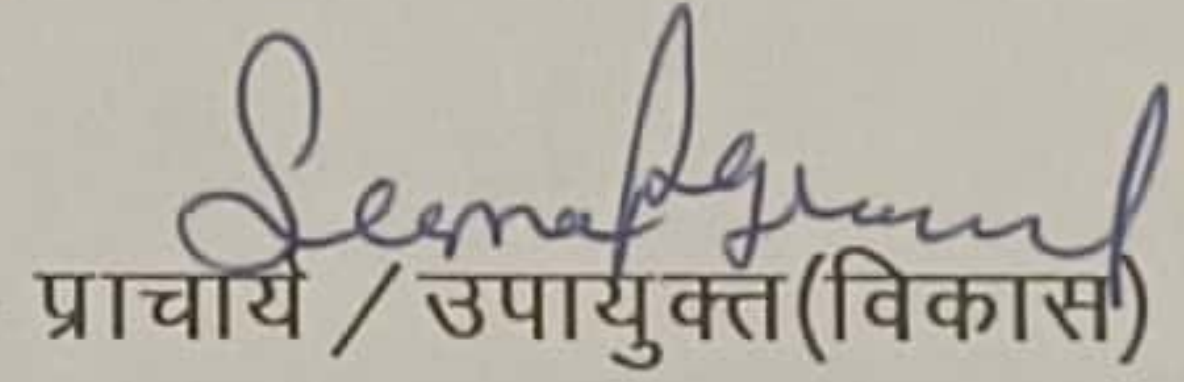 Seema Agrawal
प्राचार्य / उपायुक्त(विकास)